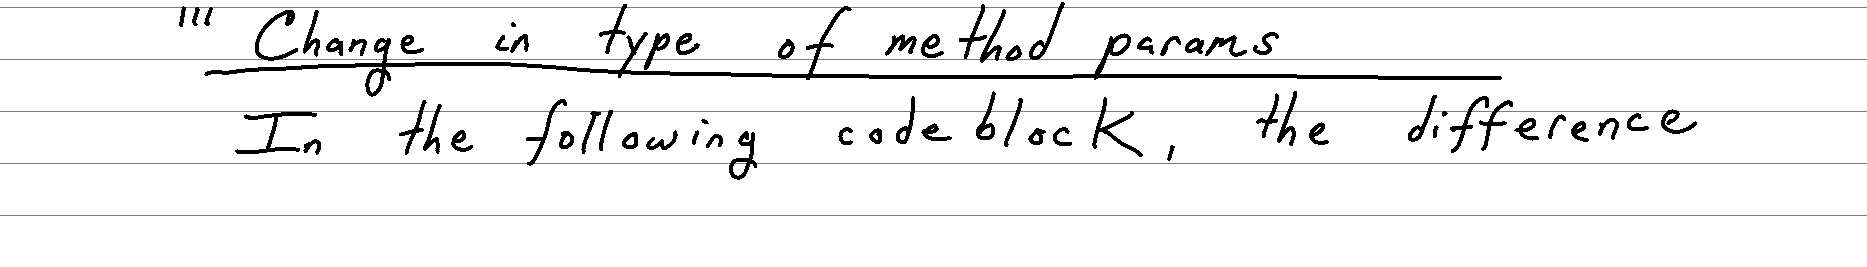 ''' Change in type of method params
In the following codeblock, the difference